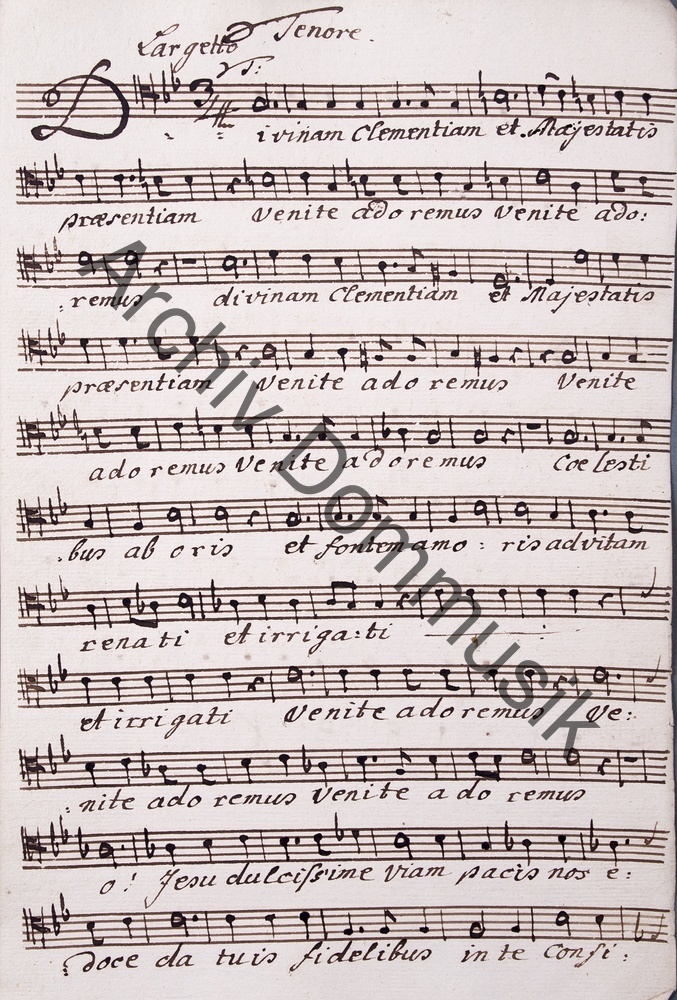 Largetto Tenore.
Divinam Clementiam et Majestatis
præsentiam Venite adoremus Venite ado:
:remus divinam Clementiam et Majestatis
præsentiam Venite adoremus Venite
adoremus Venite adoremus Coelesti
:bus ab oris et fontem amo: ris ad vitam
renati et irriga:ti
et irrigati Venite adoremus Ve:
:nite adoremus Venite adoremus
o! Jesu dulcissime Viam pacis nos e:
:doce da tuis fidelibus in te Confi:
Archiv Dommusik